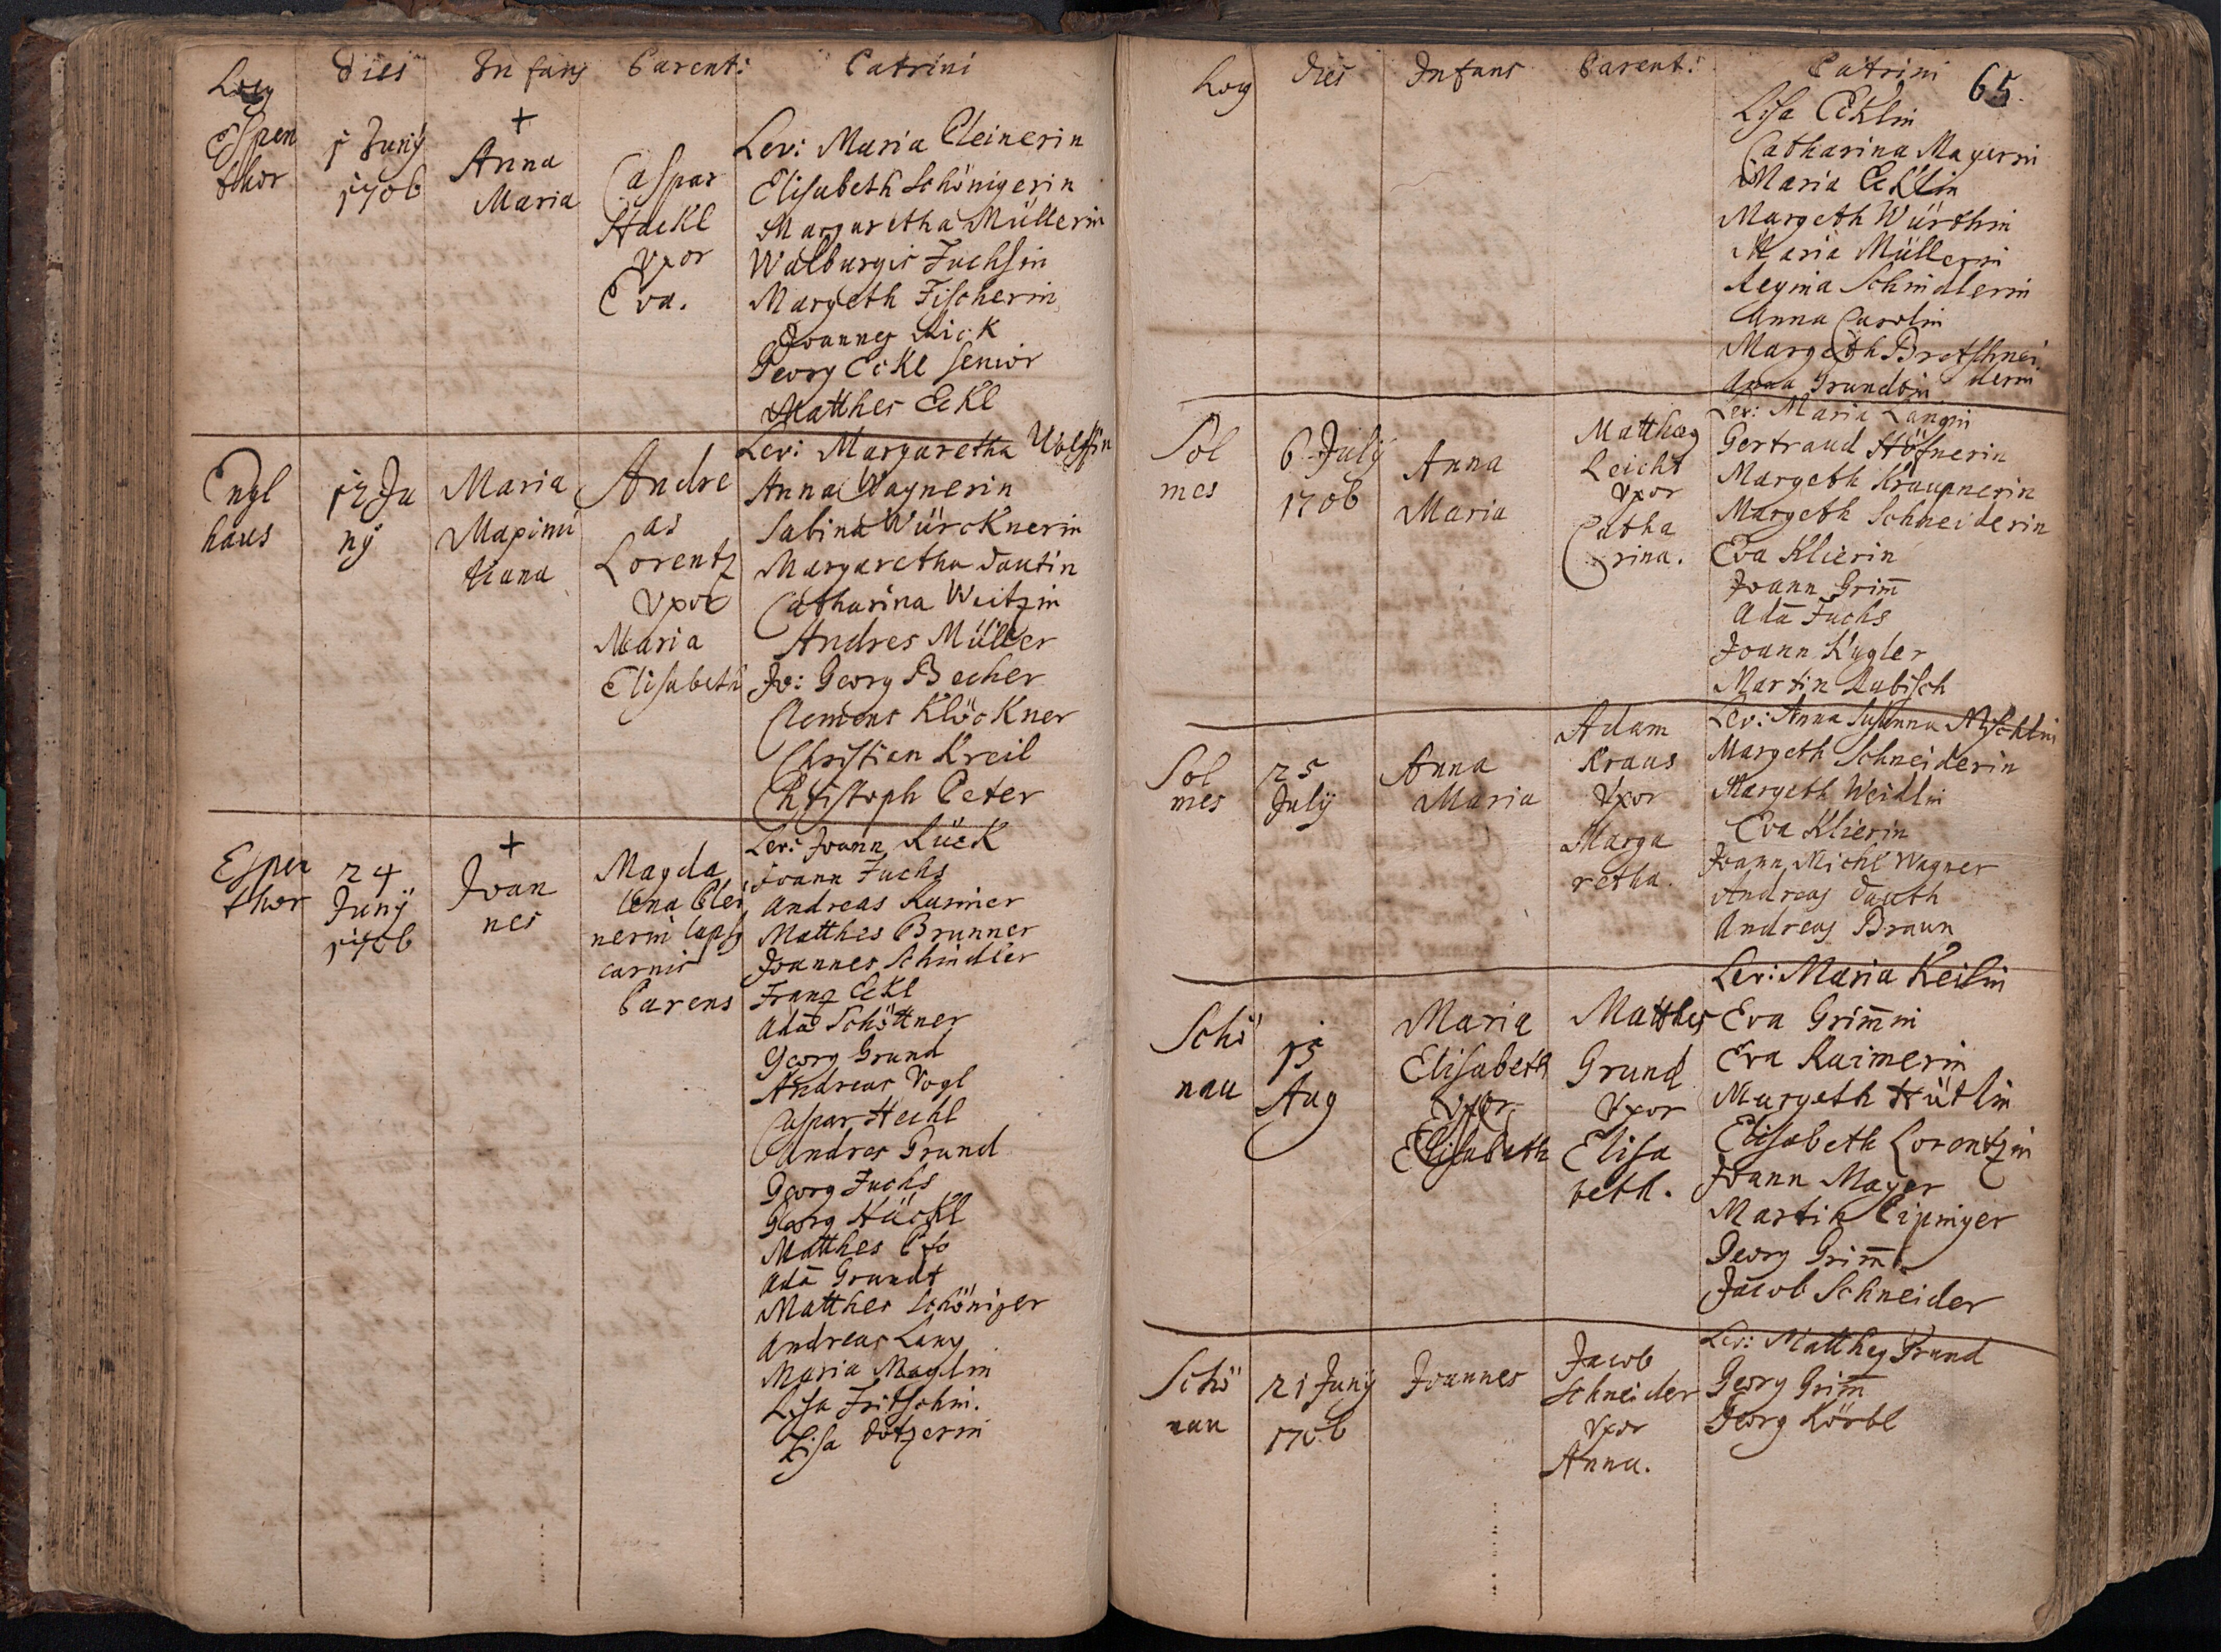 Locg Dies Infans Parent: Patrini
Espen
thor
1 Junÿ
1706
+
Anna
Maria
Caspar
Häckl
Vxor
Eva.
Lev: Maria Pleinerin
Elisabeth Schönigerin
Margaretha Müllerin
Walburgis Fuchsin
Margeth Fischerin
Joannes Rick
Georg Eckl senior
Matthes Eckl
Engl
haus
12 Ju
nÿ
Maria
Maximi
liana
Andre
as
Lorentz
Vxor
Maria
Elisabeth
Lev: Margaretha Wolffin
Anna Wagnerin
Sabina Würcknerin
Margaretha Dautin
Catharina Weitzin
Andres Müller
Jo: Georg Becher
Clemens Klöckner
Christian Kreil
Christoph Peter
Espen
thor
24
Junÿ
1706
+
Joan
nes
Magda
lena Plei
nerin lapsg
carnis
Parens
Lev: Joann Rück
Joann Fuchs
Andreas Raimer
Matthes Brunner
Joannes Schindler
Franz Eckl
Adā Schöttner
Georg Grund
Andreas Vogl
Caspar Hechl
Andres Grund
Georg Fuchs
Georg Häckl
Matthes
Adā Grundt
Matthes Schöniger
Andreas Lang
Maria Maglin
Lisa Fritschin.
Lisa Dotzerin
Log Dies Infans Parent: Patrini 65.
Lisa Ecklin
Catharina Mayerin
Maria Ecklin
Margeth Würthin
Maria Müllerin
Regina Schindlerin
Anna Carolin
Margeth Bretschnei
derin
Anna Grundtin
Sol
mes
6 Julÿ
1706
Anna
Maria
Matthæg
Leicht
Vxor
Catha
rina.
Lev: Maria Langin
Gertraud Höfnerin
Margeth Kraupnerin
Margeth Schneiderin
Eva Klierin
Joann Grim̄
Adā Fuchs
Joann Kugler
Martin Rubisch
Sol
mes
25
Julÿ
Anna
Maria
Adam
Kraus
Vxor
Marga
retha.
Lev: Anna Susanna
Margeth Schneiderin
Margeth Weidlin
Eva Klierin
Joann Michl Wagner
Andreas Dauth
Andreas Braun
Schö
nau
15
Aug
Maria
Elisabeth
Vxor
Elisabeth
Matthes
Grund
Vxor
Elisa
beth.
Lev: Maria Keilin
Eva Grim̄in
Eva Raimerin
Margeth Hütlin
Elisabeth Lorentzin
Joann Mayer
Martin Lipniger
Georg Grim̄
Jacob Schneider
Schö
nau
21 Junÿ
1706
Joannes
Jacob
Schneider
Vxor
Anna.
Lev: Mattheg Grund
Georg Grim̄
Georg Körbl